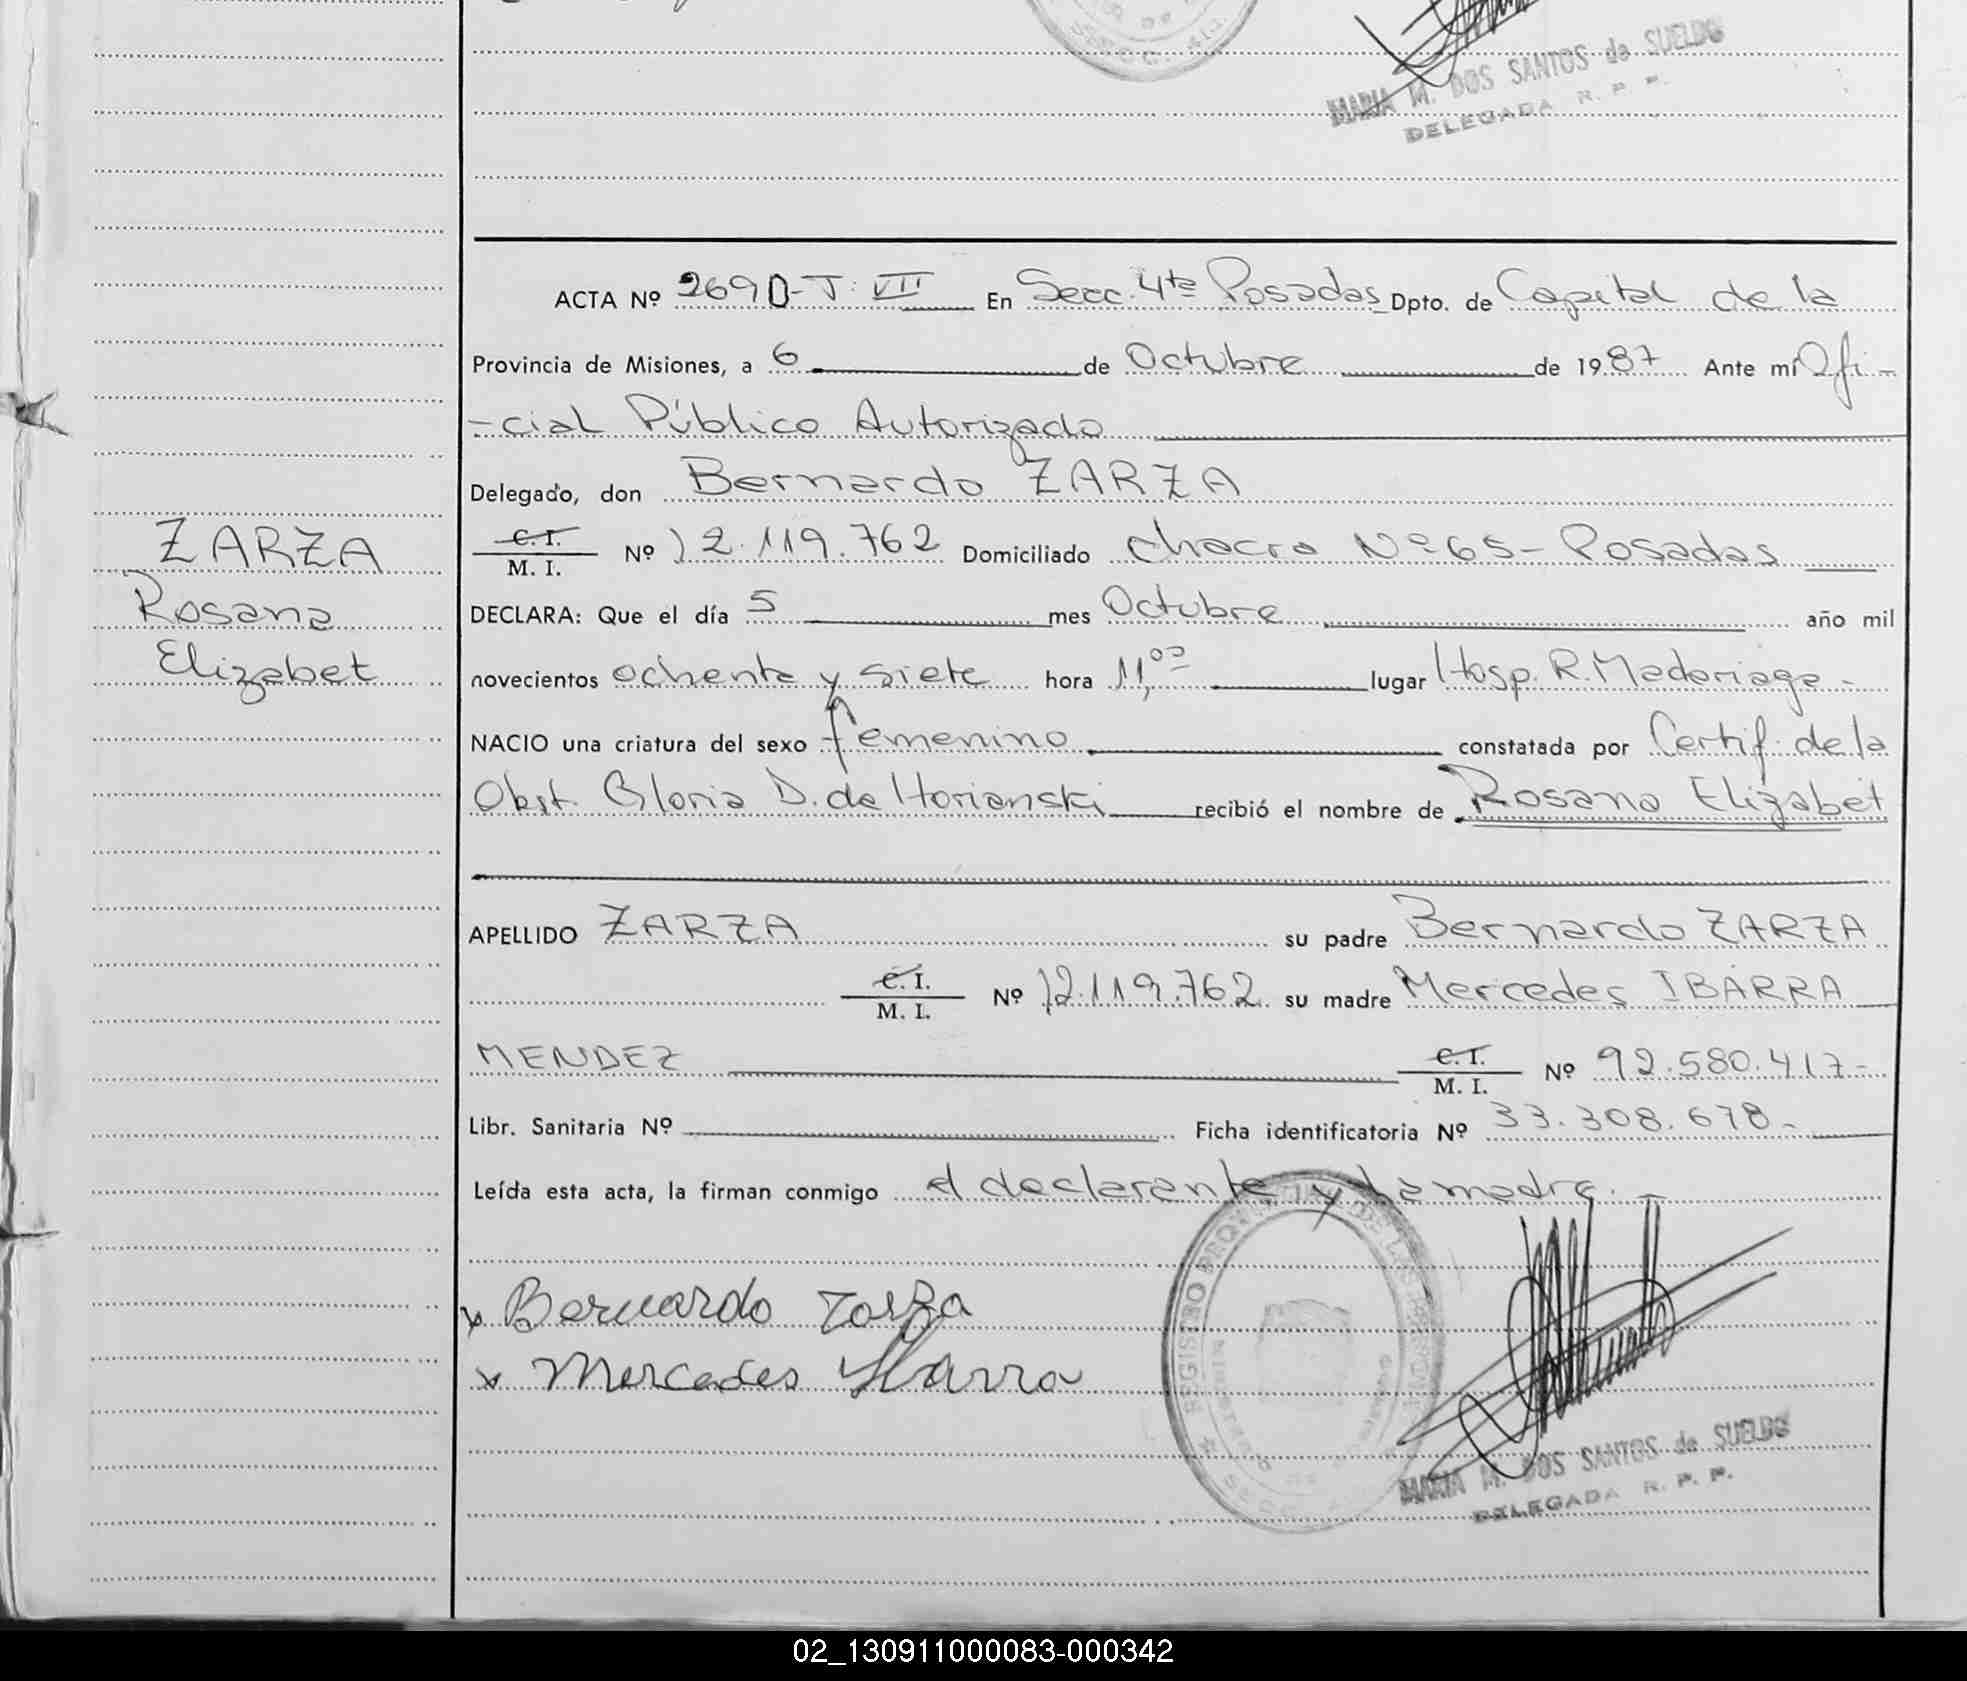 MARIA M. DOS SANTOS de SUELDO
DELEGADA R. P. P.
ACTA Nº 2690-T: VII En Secc. 4ta Posadas Dpto. de Capital de la
Provincia de Misiones, a 6 de Octubre de 1987 Ante mí Ofi-
-cial Público Autorizado
Delegado, don Bernardo ZARZA
C. I.
M. I. Nº 12.119.762 Domiciliado chacra Nº 65- Posadas
ZARZA
Rosana
Elizabet
DECLARA: Que el día 5 mes Octubre año mil
novecientos ochenta y siete hora 11,00 lugar Hosp. R. Madariaga-
NACIO una criatura del sexo femenino constatada por Certif. de la
Obst. Gloria D. de Horianski recibió el nombre de Rosana Elizabet
APELLIDO ZARZA su padre Bernardo ZARZA
C. I.
M. I. Nº 12.119.762 su madre Mercedes IBARRA
MENDEZ C. I.
M. I. Nº 92.580.417-
Libr. Sanitaria Nº Ficha identificatoria Nº 33.308.678-
Leída esta acta, la firman conmigo el declarante y la madre.
x Bernardo Zarza
x Mercedes Ibarra
REGISTRO DE LAS PERSONAS
MARIA M. DOS SANTOS de SUELDO
DELEGADA R. P. P.
02_130911000083-000342